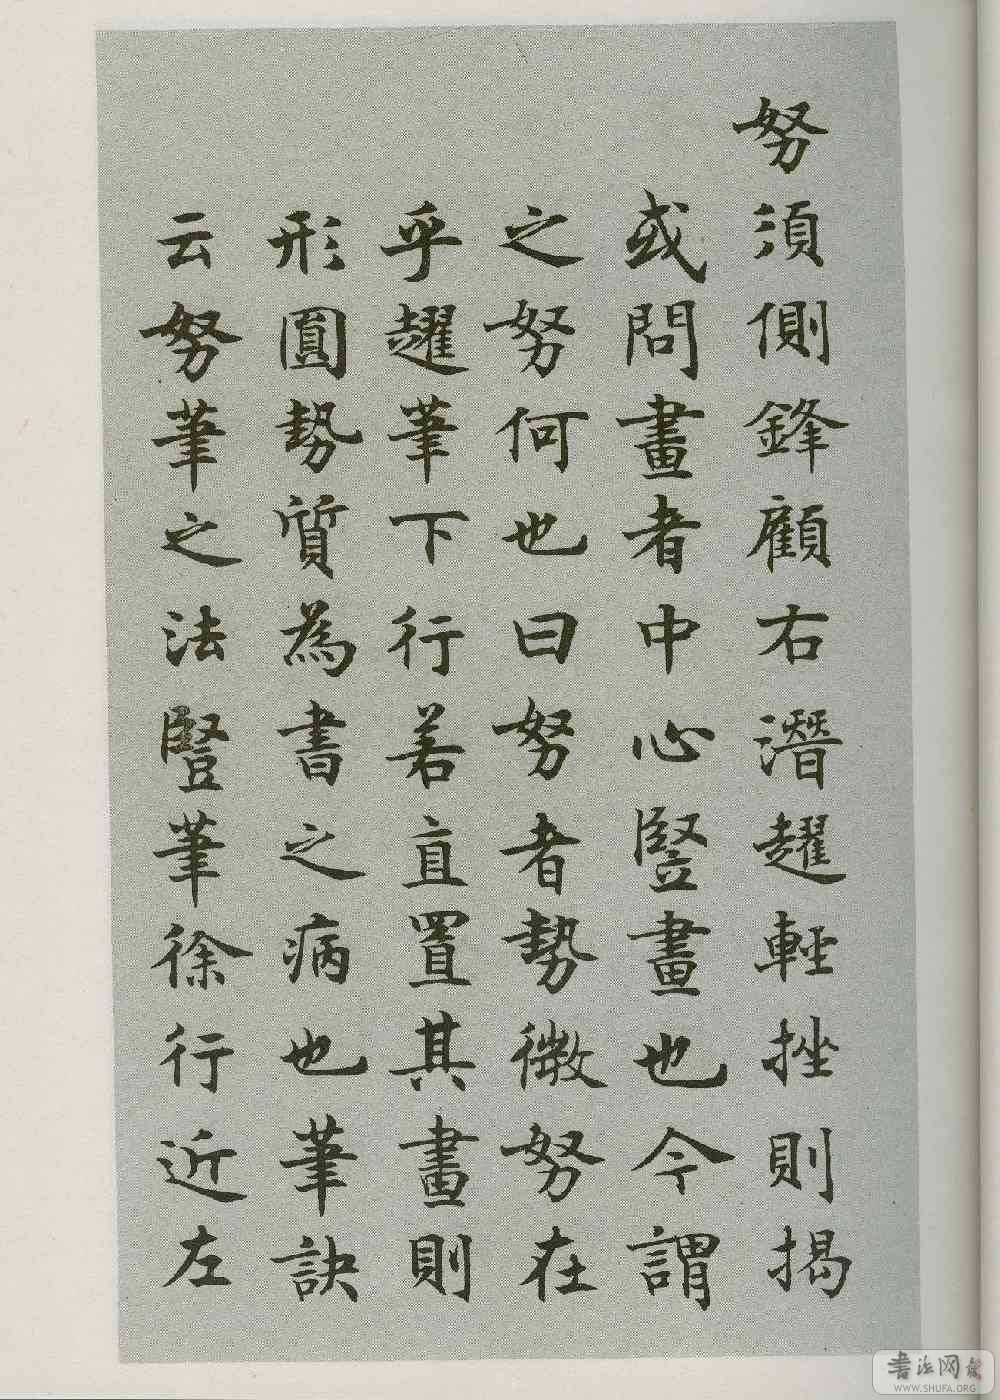 努須側鋒顧右潛趯輕挫則揭
或問畫者中心豎畫也今謂
之努何也曰努者勢微努在
乎趯筆下行若直置其畫則
形圓勢質為書之病也筆訣
云努筆之法豎筆徐行近左
書法网
WWW.SHUFA.ORG